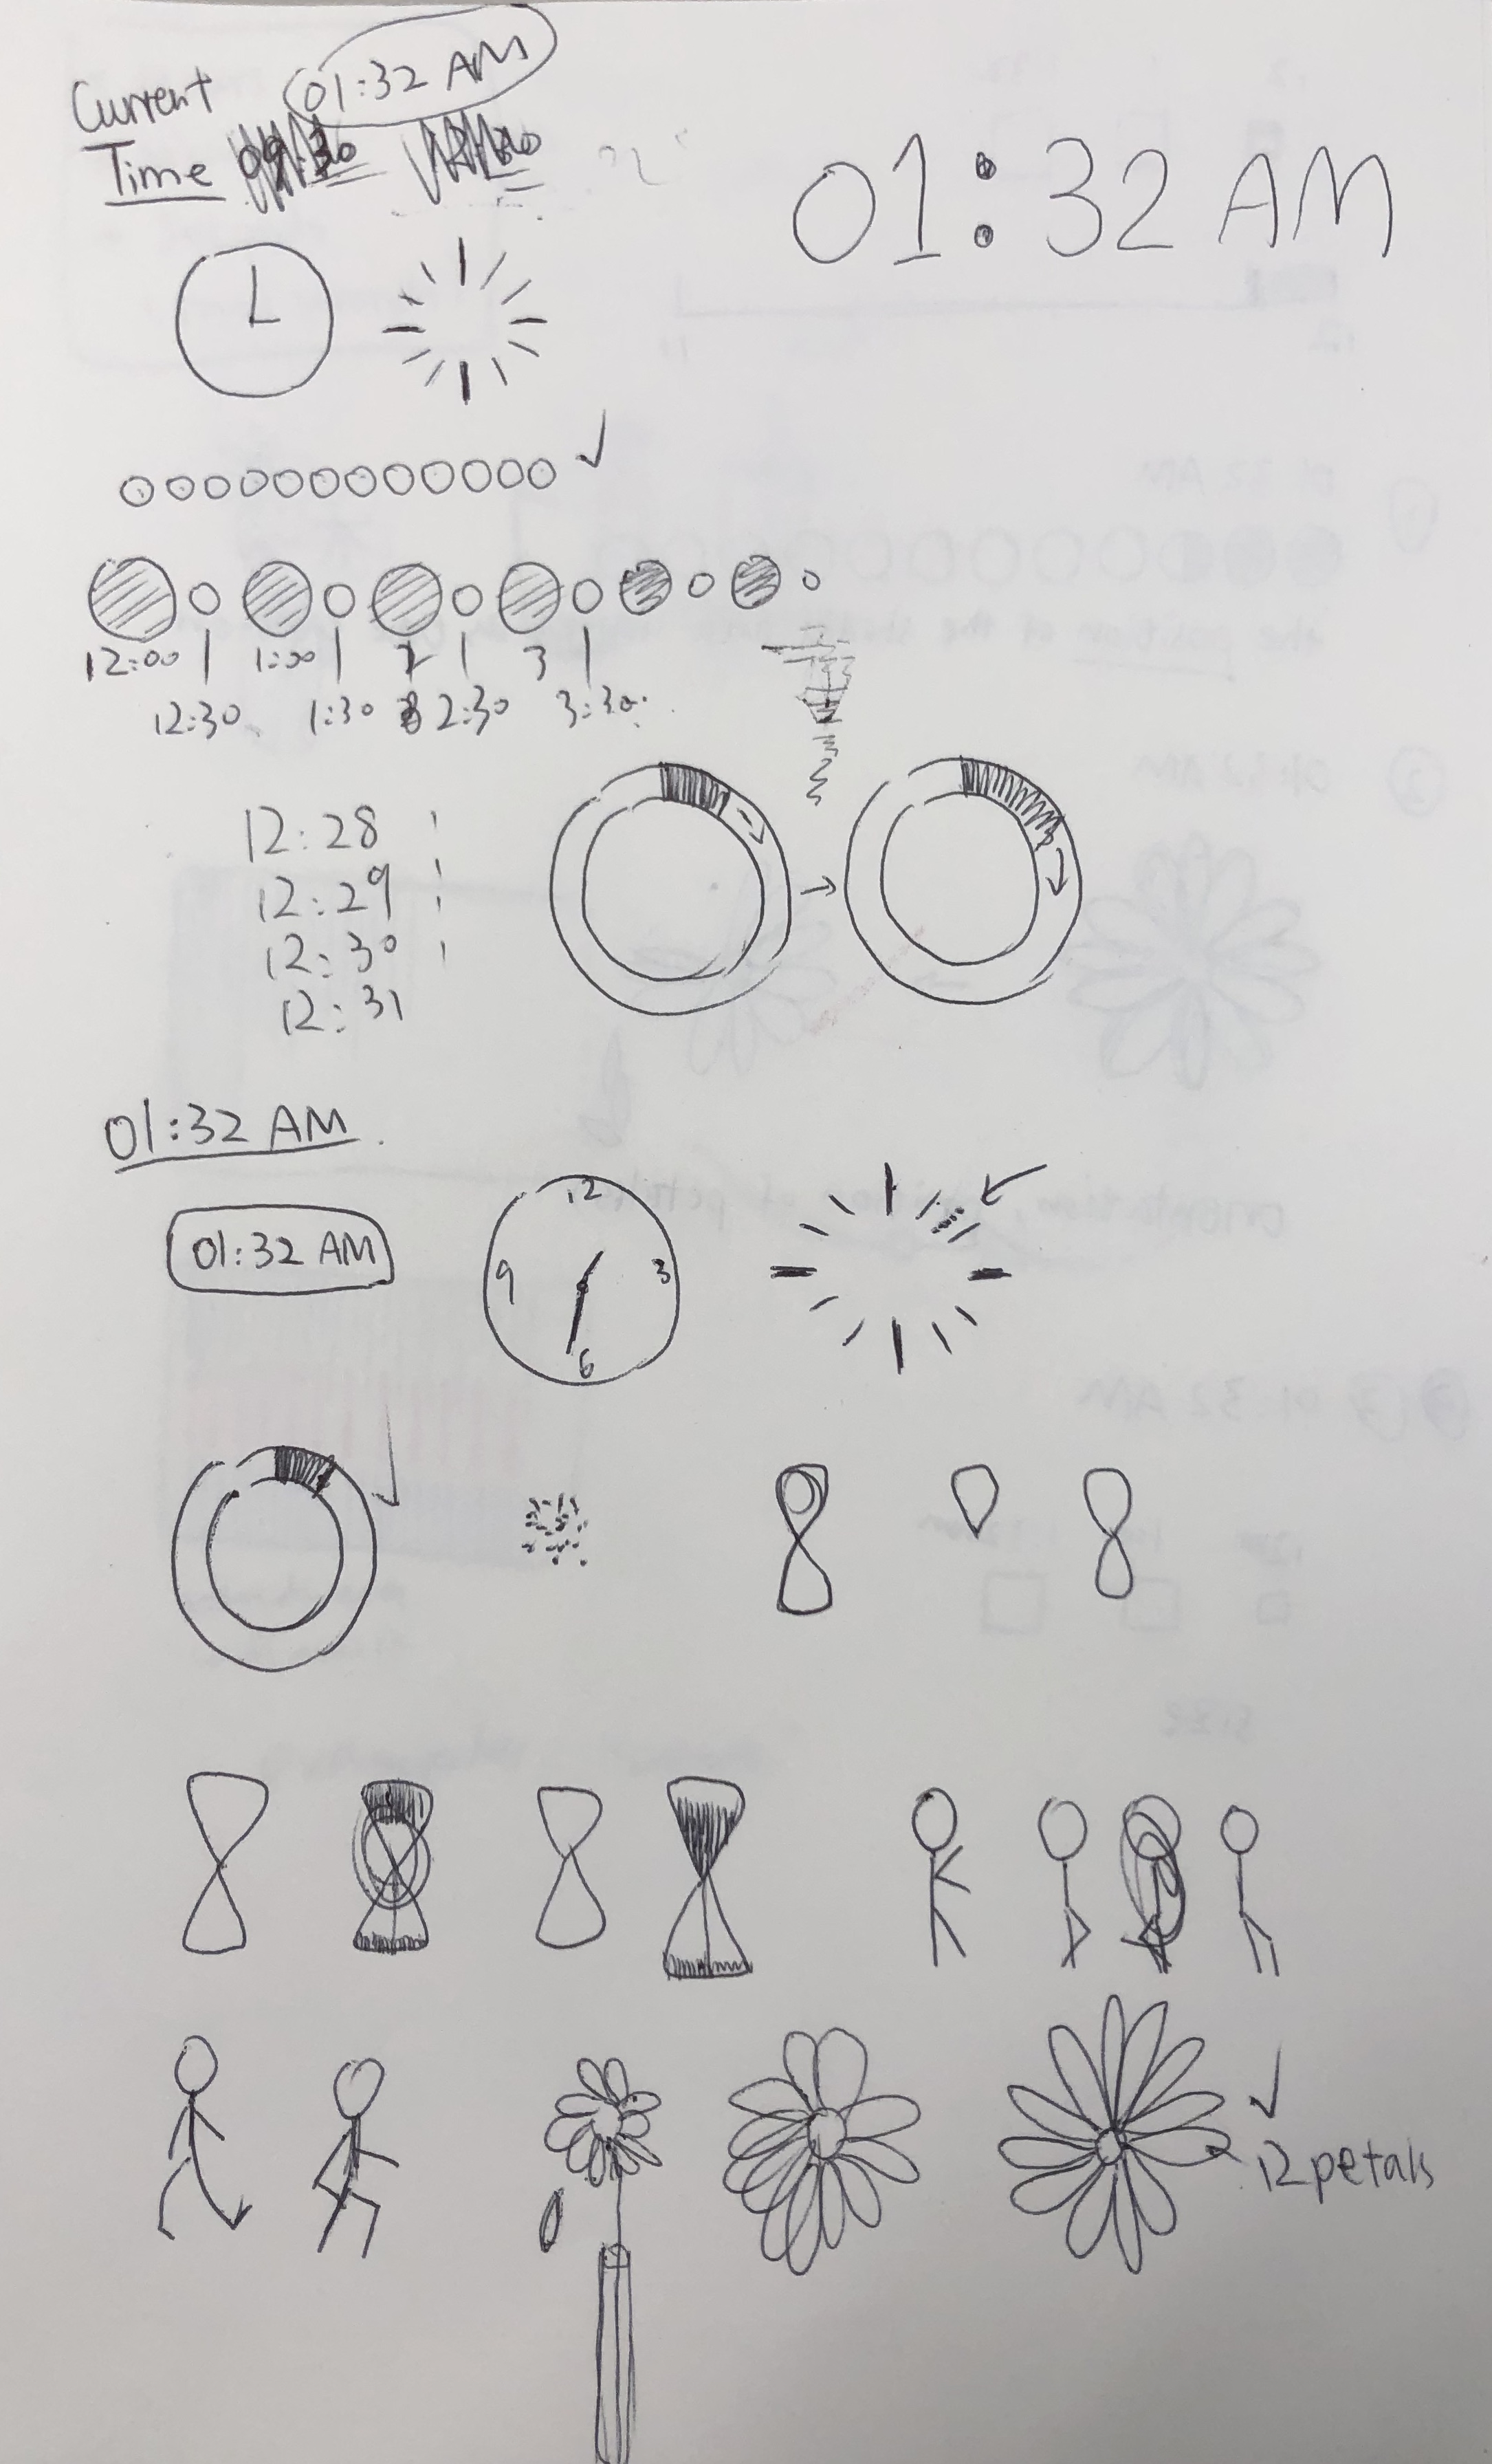 Current 01:32 AM
Time
01:32 AM
12:00 1:00 2 3
12:30 1:30 2:30 3:30
12:28
12:29
12:30
12:31
01:32 AM
01:32 AM
12
9 3
6
12 petals